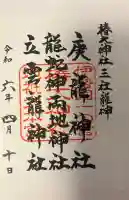 椿大神社三社龍神
庚龍神社
龍蛇神両地神社
立雲龍神社
令和六年四月十日